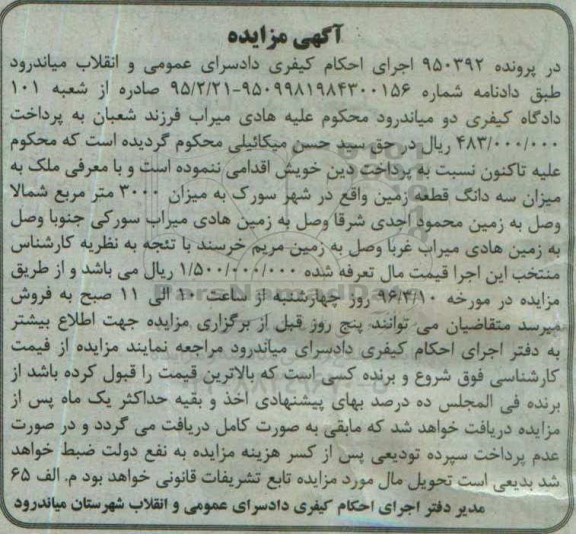 آگهی مزایده
در پرونده ۹۵۰۳۹۲ اجرای احکام کیفری دادسرای عمومی و انقلاب میاندرود
طبق دادنامه شماره ۹۵۰۹۹۸۱۹۸۴۳۰۰۱۵۶-۹۵/۲/۲۱ صادره از شعبه ۱۰۱
دادگاه کیفری دو میاندرود محکوم علیه هادی میراب فرزند شعبان به پرداخت
۴۸۳/۰۰۰/۰۰۰ ریال در حق سید حسن میکائیلی محکوم گردیده است که محکوم
علیه تاکنون نسبت به پرداخت دین خویش اقدامی ننموده است و با معرفی ملک به
میزان سه دانگ قطعه زمین واقع در شهر سورک به میزان ۳۰۰۰ متر مربع شمالا
وصل به زمین محمود احدی شرقا وصل به زمین هادی میراب سورکی جنوبا وصل
به زمین هادی میراب غربا وصل به زمین مریم خرسند با نتجه به نظریه کارشناس
منتخب این اجرا قیمت مال تعرفه شده ۱/۵۰۰/۰۰۰/۰۰۰ ریال می باشد و از طریق
مزایده در مورخه ۹۶/۳/۱۰ روز چهارشنبه از ساعت ۱۰ الی ۱۱ صبح به فروش
میرسد متقاضیان می توانند پنج روز قبل از برگزاری مزایده جهت اطلاع بیشتر
به دفتر اجرای احکام کیفری دادسرای میاندرود مراجعه نمایند مزایده از قیمت
کارشناسی فوق شروع و برنده کسی است که بالاترین قیمت را قبول کرده باشد از
برنده فی المجلس ده درصد بهای پیشنهادی اخذ و بقیه حداکثر یک ماه پس از
مزایده دریافت خواهد شد که مابقی به صورت کامل دریافت می گردد و در صورت
عدم پرداخت سپرده تودیعی پس از کسر هزینه مزایده به نفع دولت ضبط خواهد
شد بدیعی است تحویل مال مورد مزایده تابع تشریفات قانونی خواهد بود م. الف ۶۵
مدیر دفتر اجرای احکام کیفری دادسرای عمومی و انقلاب شهرستان میاندرود